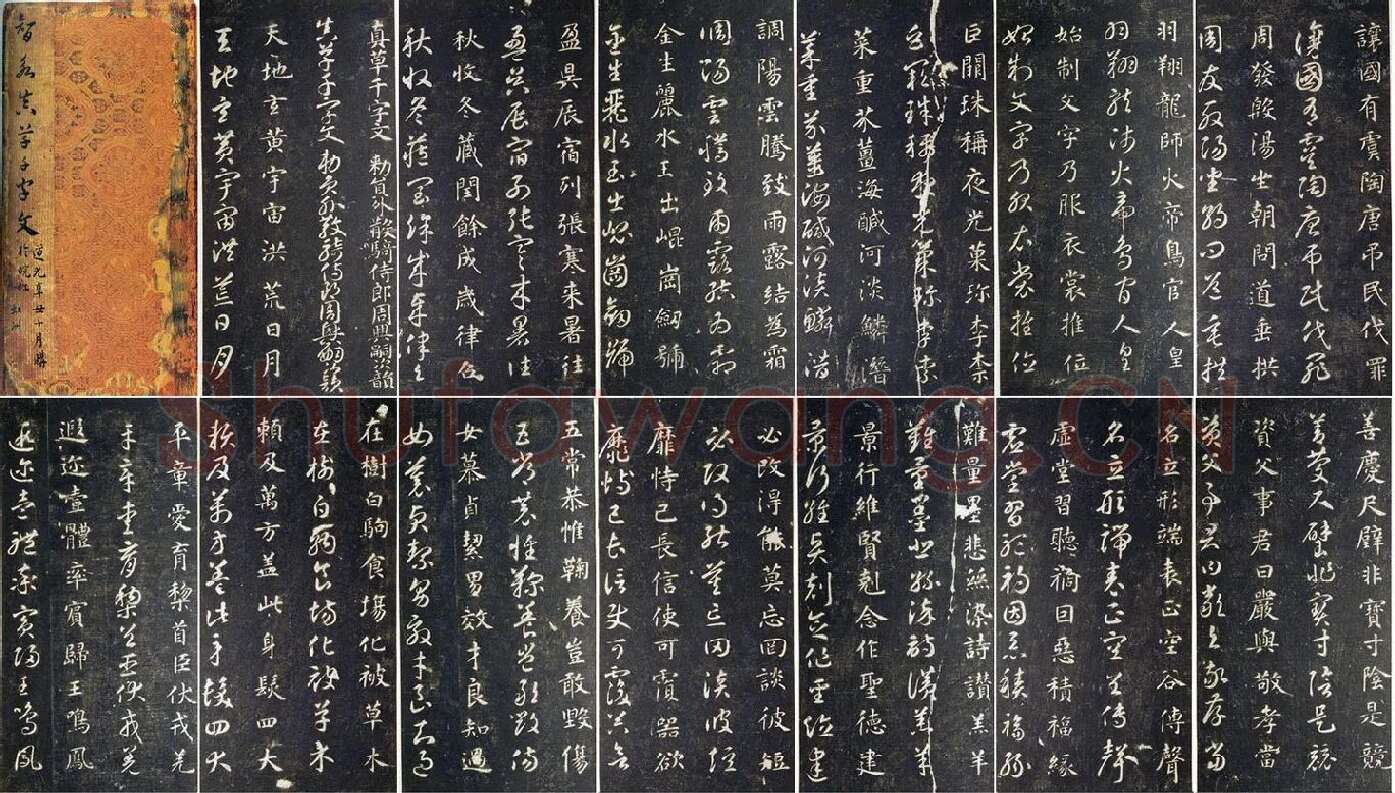 智永真草千字文
道光辛丑十月購
真草千字文 勅員外散騎侍郎周興嗣次韻
真草千字文 勅員外散騎侍郎周興嗣次韻
天地玄黃宇宙洪荒日月
天地玄黃宇宙洪荒日月
盈昃辰宿列張寒来暑往
盈昃辰宿列張寒来暑往
秋收冬藏閏餘成歲律呂
秋收冬藏閏餘成歲律呂
調陽雲騰致雨露結為霜
調陽雲騰致雨露結為霜
金生麗水玉出崐崗劔號
金生麗水玉出崐崗劔號
巨闕珠稱夜光菓珎李柰
巨闕珠稱夜光菓珎李柰
菜重芥薑海醎河淡鱗潛
菜重芥薑海醎河淡鱗潛
羽翔龍師火帝鳥官人皇
羽翔龍師火帝鳥官人皇
始制文字乃服衣裳推位
始制文字乃服衣裳推位
讓國有虞陶唐弔民伐罪
讓國有虞陶唐弔民伐罪
周發殷湯坐朝問道垂拱
周發殷湯坐朝問道垂拱
平章愛育黎首臣伏戎羌
平章愛育黎首臣伏戎羌
遐邇壹體率賓歸王鳴鳳
遐邇壹體率賓歸王鳴鳳
在樹白駒食場化被草木
在樹白駒食場化被草木
賴及萬方盖此身髮四大
賴及萬方盖此身髮四大
五常恭惟鞠養豈敢毀傷
五常恭惟鞠養豈敢毀傷
女慕貞絜男效才良知過
女慕貞絜男效才良知過
必改得能莫忘罔談彼短
必改得能莫忘罔談彼短
靡恃己長信使可覆器欲
靡恃己長信使可覆器欲
難量墨悲絲染詩讃羔羊
難量墨悲絲染詩讃羔羊
景行維賢剋念作聖德建
景行維賢剋念作聖德建
名立形端表正空谷傳聲
名立形端表正空谷傳聲
虛堂習聽禍因惡積福緣
虛堂習聽禍因惡積福緣
善慶尺璧非寶寸陰是競
善慶尺璧非寶寸陰是競
資父事君曰嚴與敬孝當
資父事君曰嚴與敬孝當
Shufawang.CN